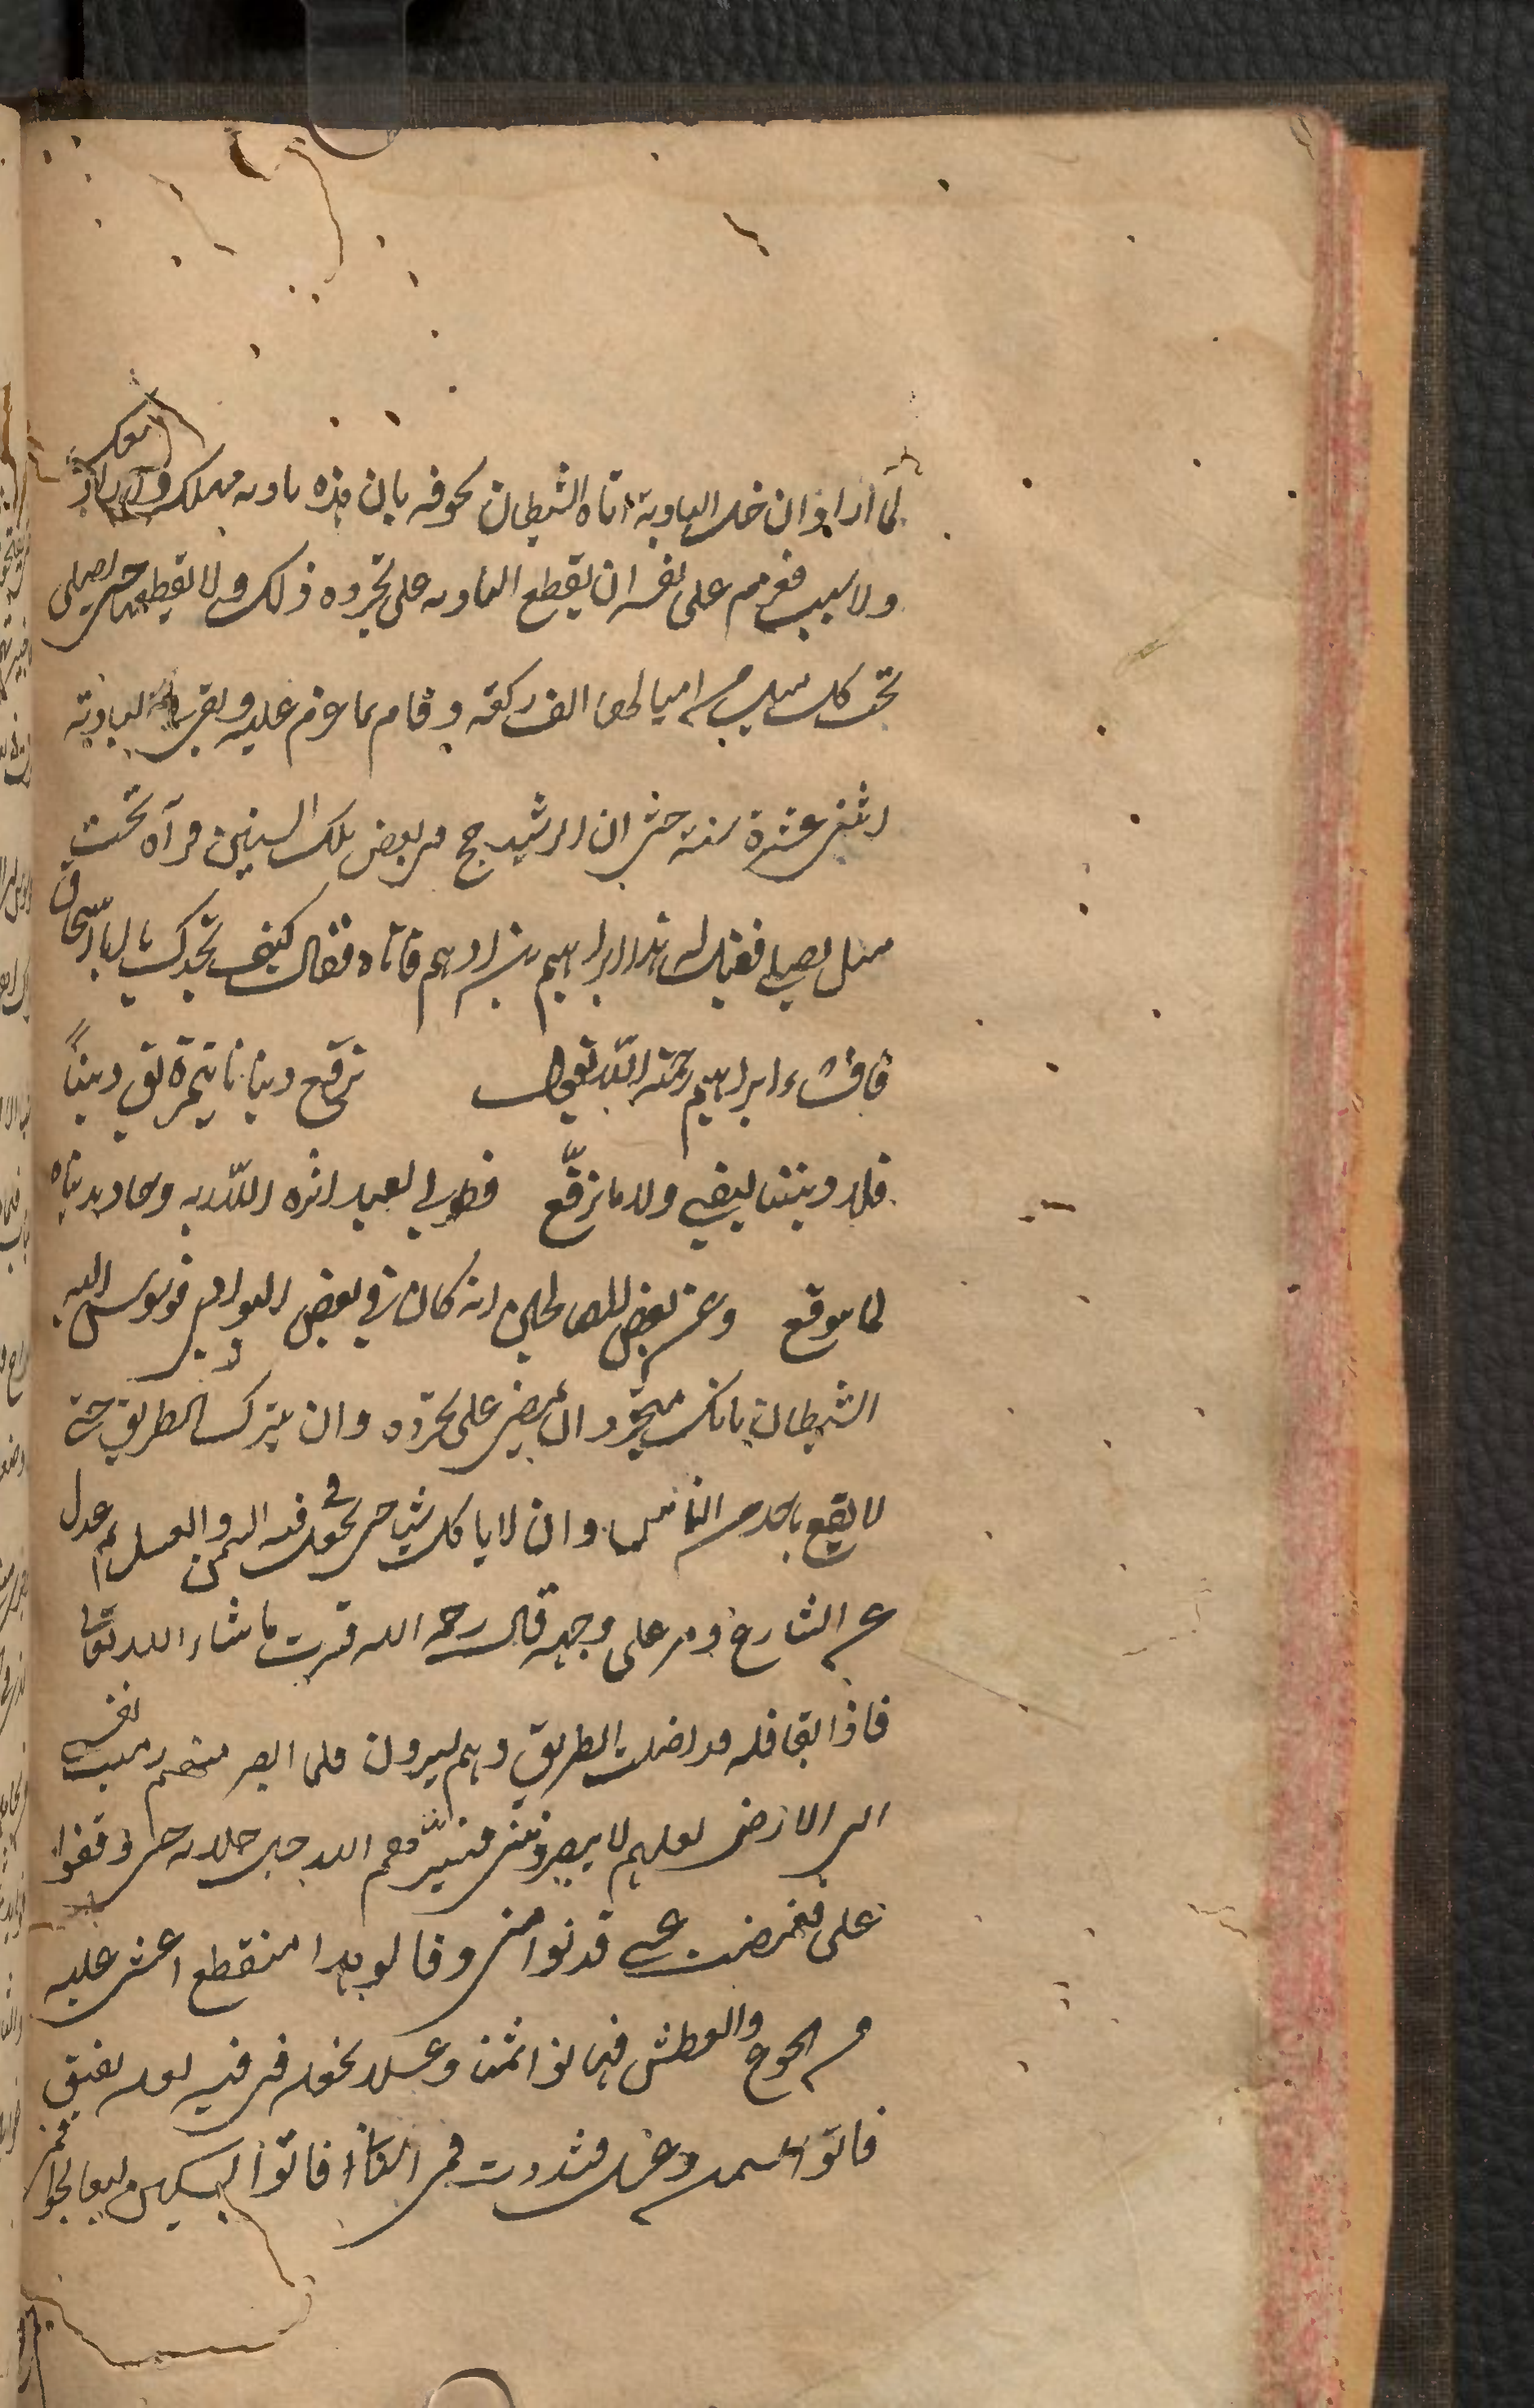 لما اراد ان خل البادية اتاه الشيطان يخوفه بان هذه بادية مهلكة ولا زاد معك
ولا سبب فعزم على نفسه ان يقطع البادية على تجرده ذلك ولا يقطعها حتى يصلى
تحت كل ميل من اميالها الف ركعة وقام بما عزم عليه وبقى البادية
اثنى عشرة سنة حتى ان الرشيد حج فى بعض تلك السنين فرآه تحت
ميل يصلى فقيل له هذا ابراهيم بن ادهم فاتاه فقال كيف تجدك يا ابا اسحاق
فانشاء ابراهيم رحمة الله يقول نرقع دنيانا بتمزيق ديننا
فلا ديننا يبقى ولا ما نرقع فطوبى لعبد اثره الله ربه وجاد بدنياه
لما يتوقع وعن بعض الصالحين انه كان فى بعض البوادى فوسوس اليه
الشيطان بانك متجرد ان يمضى على تجرده وان يترك الطريق حتى
لا يقع باحد من الناس وان لا ياكل شيئا حتى يجعل فى فيه السمن والعسل ثم عدل
عن الشارع ومر على وجهه قال رحمه الله فسرت ما شاء الله تعالى
فاذا بقافلة قد اضلت الطريق وهم يسيرون فلما ابصرتهم رميت نفسى
الى الارض لعلهم لا يبصروننى فسيرهم الله جل جلاله حتى وقفوا
على فغمضت عينى فدنوا منى وقالوا هذا منقطع اغشى عليه
من الجوع والعطش فهاتوا سمنا وعسلا نجعله فى فيه لعله يفيق
فاتوا بسمن وعسل فسددت فمى فاتوا بسكين ليعالجوا فمى